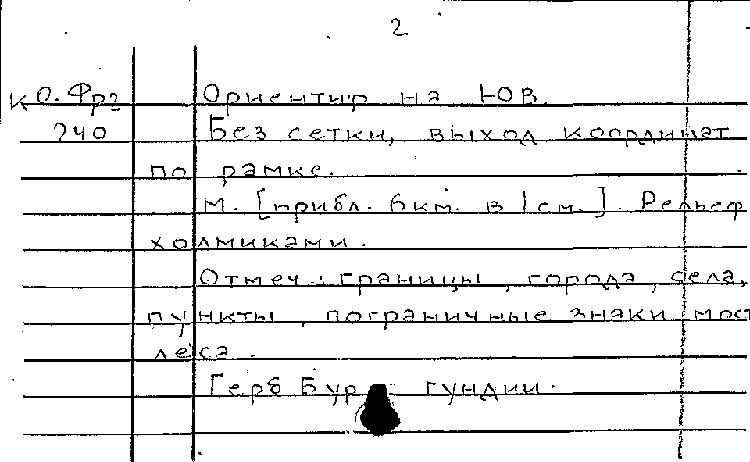 2
К О. Фрг Ориентир на ЮВ.
740 Без сетки, выход координат
по рамке.
М. [прибл. 6км. в 1см.]. Рельеф
холмиками.
Отмеч.: границы, города, села,
пункты, пограничные знаки, мост
леса.
Герб Бургундии.